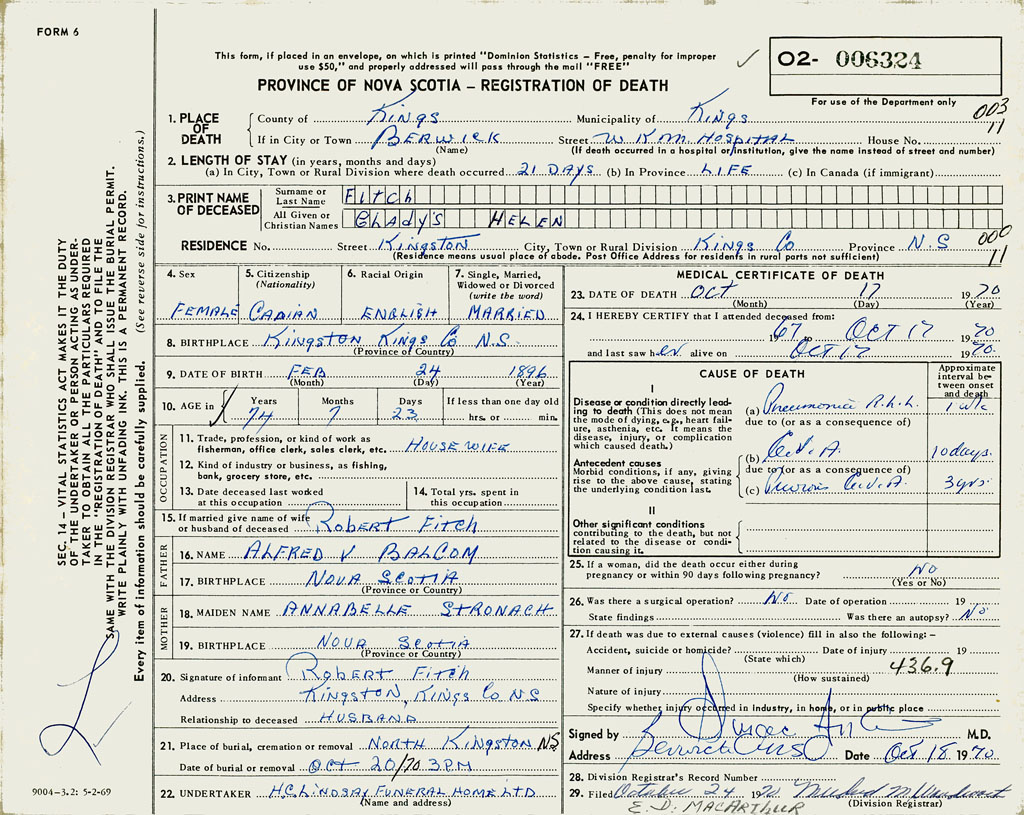 FORM 6
This form, if placed in an envelope, on which is printed "Dominion Statistics – Free, penalty for improper
use $50," and properly addressed will pass through the mail "FREE"
02- 006324
PROVINCE OF NOVA SCOTIA – REGISTRATION OF DEATH
For use of the Department only
003
11
1. PLACE OF DEATH County of Kings Municipality of Kings
If in City or Town BERWICK Street W K M. HOSPITAL House No.
(Name) (If death occurred in a hospital or institution, give the name instead of street and number)
2. LENGTH OF STAY (in years, months and days)
(a) In City, Town or Rural Division where death occurred 21 DAYS (b) In Province LIFE (c) In Canada (if immigrant)
3. PRINT NAME OF DECEASED Surname or Last Name Fitch
All Given or Christian Names GLADY'S HELEN
RESIDENCE No. Street KINGSTON City, Town or Rural Division KINGS Co Province N.S
000
11
(Residence means usual place of abode. Post Office Address for residents in rural parts not sufficient)
4. Sex 5. Citizenship (Nationality) 6. Racial Origin 7. Single, Married, Widowed or Divorced (write the word)
FEMALE CADIAN ENGLISH MARRIED
8. BIRTHPLACE KINGSTON KINGS Co N.S.
(Province of Country)
9. DATE OF BIRTH FEB 24 1896
(Month) (Day) (Year)
10. AGE in Years Months Days If less than one day old
74 7 23 hrs. or min.
OCCUPATION
11. Trade, profession, or kind of work as
fisherman, office clerk, sales clerk, etc. HOUSE WIFE
12. Kind of industry or business, as fishing,
bank, grocery store, etc.
13. Date deceased last worked
at this occupation
14. Total yrs. spent in
this occupation
15. If married give name of wife
or husband of deceased ROBERT FITCH
FATHER
16. NAME ALFRED V BALCOM
17. BIRTHPLACE NOVA SCOTIA
(Province or Country)
MOTHER
18. MAIDEN NAME ANNABELLE STRONACH
19. BIRTHPLACE NOVA SCOTIA
(Province or Country)
20. Signature of informant ROBERT FITCH
Address KINGSTON, KINGS Co N.S
Relationship to deceased HUSBAND
21. Place of burial, cremation or removal NORTH KINGSTON NS
Date of burial or removal OCT 20/70 3 PM
22. UNDERTAKER H.C. LINDSAY FUNERAL HOME LTD
(Name and address)
MEDICAL CERTIFICATE OF DEATH
23. DATE OF DEATH OCT 17 1970
(Month) (Day) (Year)
24. I HEREBY CERTIFY that I attended deceased from:
1967 OCT 17 1970
and last saw her alive on OCT 17 1970.
CAUSE OF DEATH
Approximate interval between onset and death
I
Disease or condition directly leading to death (This does not mean the mode of dying, e.g., heart failure, asthenia, etc. It means the disease, injury, or complication which caused death.)
(a) Pneumonia R.L.L. 1 wk
due to (or as a consequence of)
(b) C.V.A. 10 days.
Antecedent causes
Morbid conditions, if any, giving rise to the above cause, stating the underlying condition last.
due to (or as a consequence of)
(c) C.V.A 3 yrs.
II
Other significant conditions
contributing to the death, but not related to the disease or condition causing it.
25. If a woman, did the death occur either during
pregnancy or within 90 days following pregnancy? NO
(Yes or No)
26. Was there a surgical operation? NO Date of operation 19
State findings Was there an autopsy? No
27. If death was due to external causes (violence) fill in also the following: –
Accident, suicide or homicide? Date of injury 19
(State which)
Manner of injury 436.9
(How sustained)
Nature of injury
Specify whether injury occurred in industry, in home, or in public place
Signed by M.D.
Address Berwick Date Oct 18 1970
28. Division Registrar's Record Number
29. Filed October 24 1970
(Division Registrar)
E. D. MACARTHUR
SEC. 14 – VITAL STATISTICS ACT MAKES IT THE DUTY
OF THE UNDERTAKER OR PERSON ACTING AS UNDER-
TAKER TO OBTAIN ALL THE PARTICULARS REQUIRED
IN THE "REGISTRATION OF DEATH" AND TO FILE THE
SAME WITH THE DIVISION REGISTRAR WHO SHALL ISSUE THE BURIAL PERMIT.
WRITE PLAINLY WITH UNFADING INK. THIS IS A PERMANENT RECORD.
Every item of information should be carefully supplied. (See reverse side for instructions.)
9004-3.2: 5-2-69